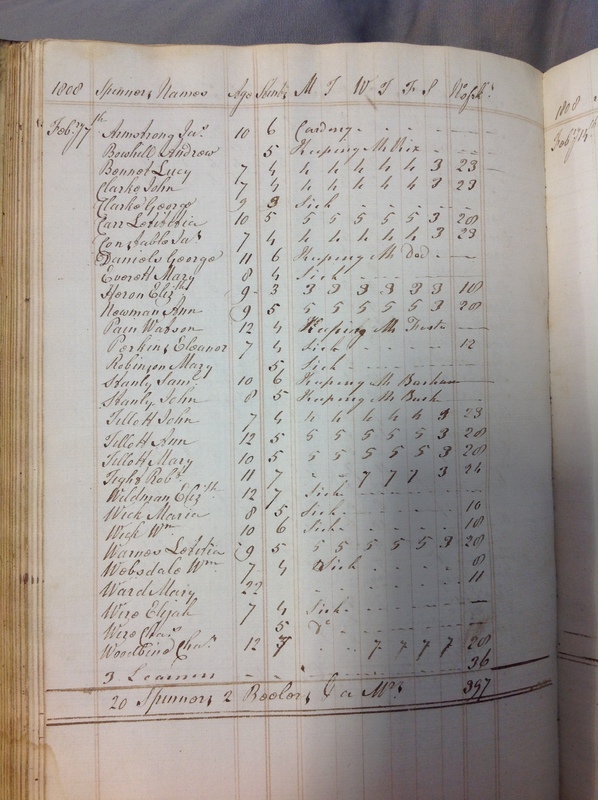 1808 Spinners Names Age Stints M T W T F S Hopks 1808
Feby 7th Armstrong Jas 10 6 Carding - - - - - Feby 14th
Bowhill Andrew 5 Keeping Mr - - -
Bennet Lucy 7 4 4 4 4 4 4 3 23
Clarke John 7 4 4 4 4 4 4 3 23
Clarke George 9 3 Sick - - - -
Earl Letititia 10 5 5 5 5 5 5 3 28
Constable Jas 7 4 4 4 4 4 4 3 23
Daniels George 11 6 Keeping Mr Dod - -
Everett Mary 8 4 Sick - - - -
Heron Elizth 9 3 3 3 3 3 3 3 18
Newman Ann 9 5 5 5 5 5 5 3 28
Pain Watson 12 4 Keeping Mr
Perkins Eleanor 7 4 Sick - - - - 12
Robinson Mary 5 Sick - - - -
Stanly Saml 10 6 Keeping Mr Basham
Stanly John 8 5 Keeping Mr Buck - -
Tillott John 7 4 4 4 4 4 4 3 23
Tillott Ann 12 5 5 5 5 5 5 3 28
Tillott Mary 10 5 5 5 5 5 5 3 28
Tight Robt 11 7 - - 7 7 7 3 24
Wildman Elizth 12 7 Sick - - - -
Wick Maria 8 5 Sick - - - - 10
Wick Wm 10 6 Sick - - - - 18
Warnes Letitia 9 5 5 5 5 5 5 3 28
Websdale Wm 7 4 Sick - - - - 8
Ward Mary 22 - - - - - 11
Wire Elijah 7 4 Sick - - - -
Wire Chas 5 Do - - - -
Woodbine Chas 12 7 - - 7 7 7 7 28
3 Learners - - - - 36
20 Spinners 2 & a Mrs 397